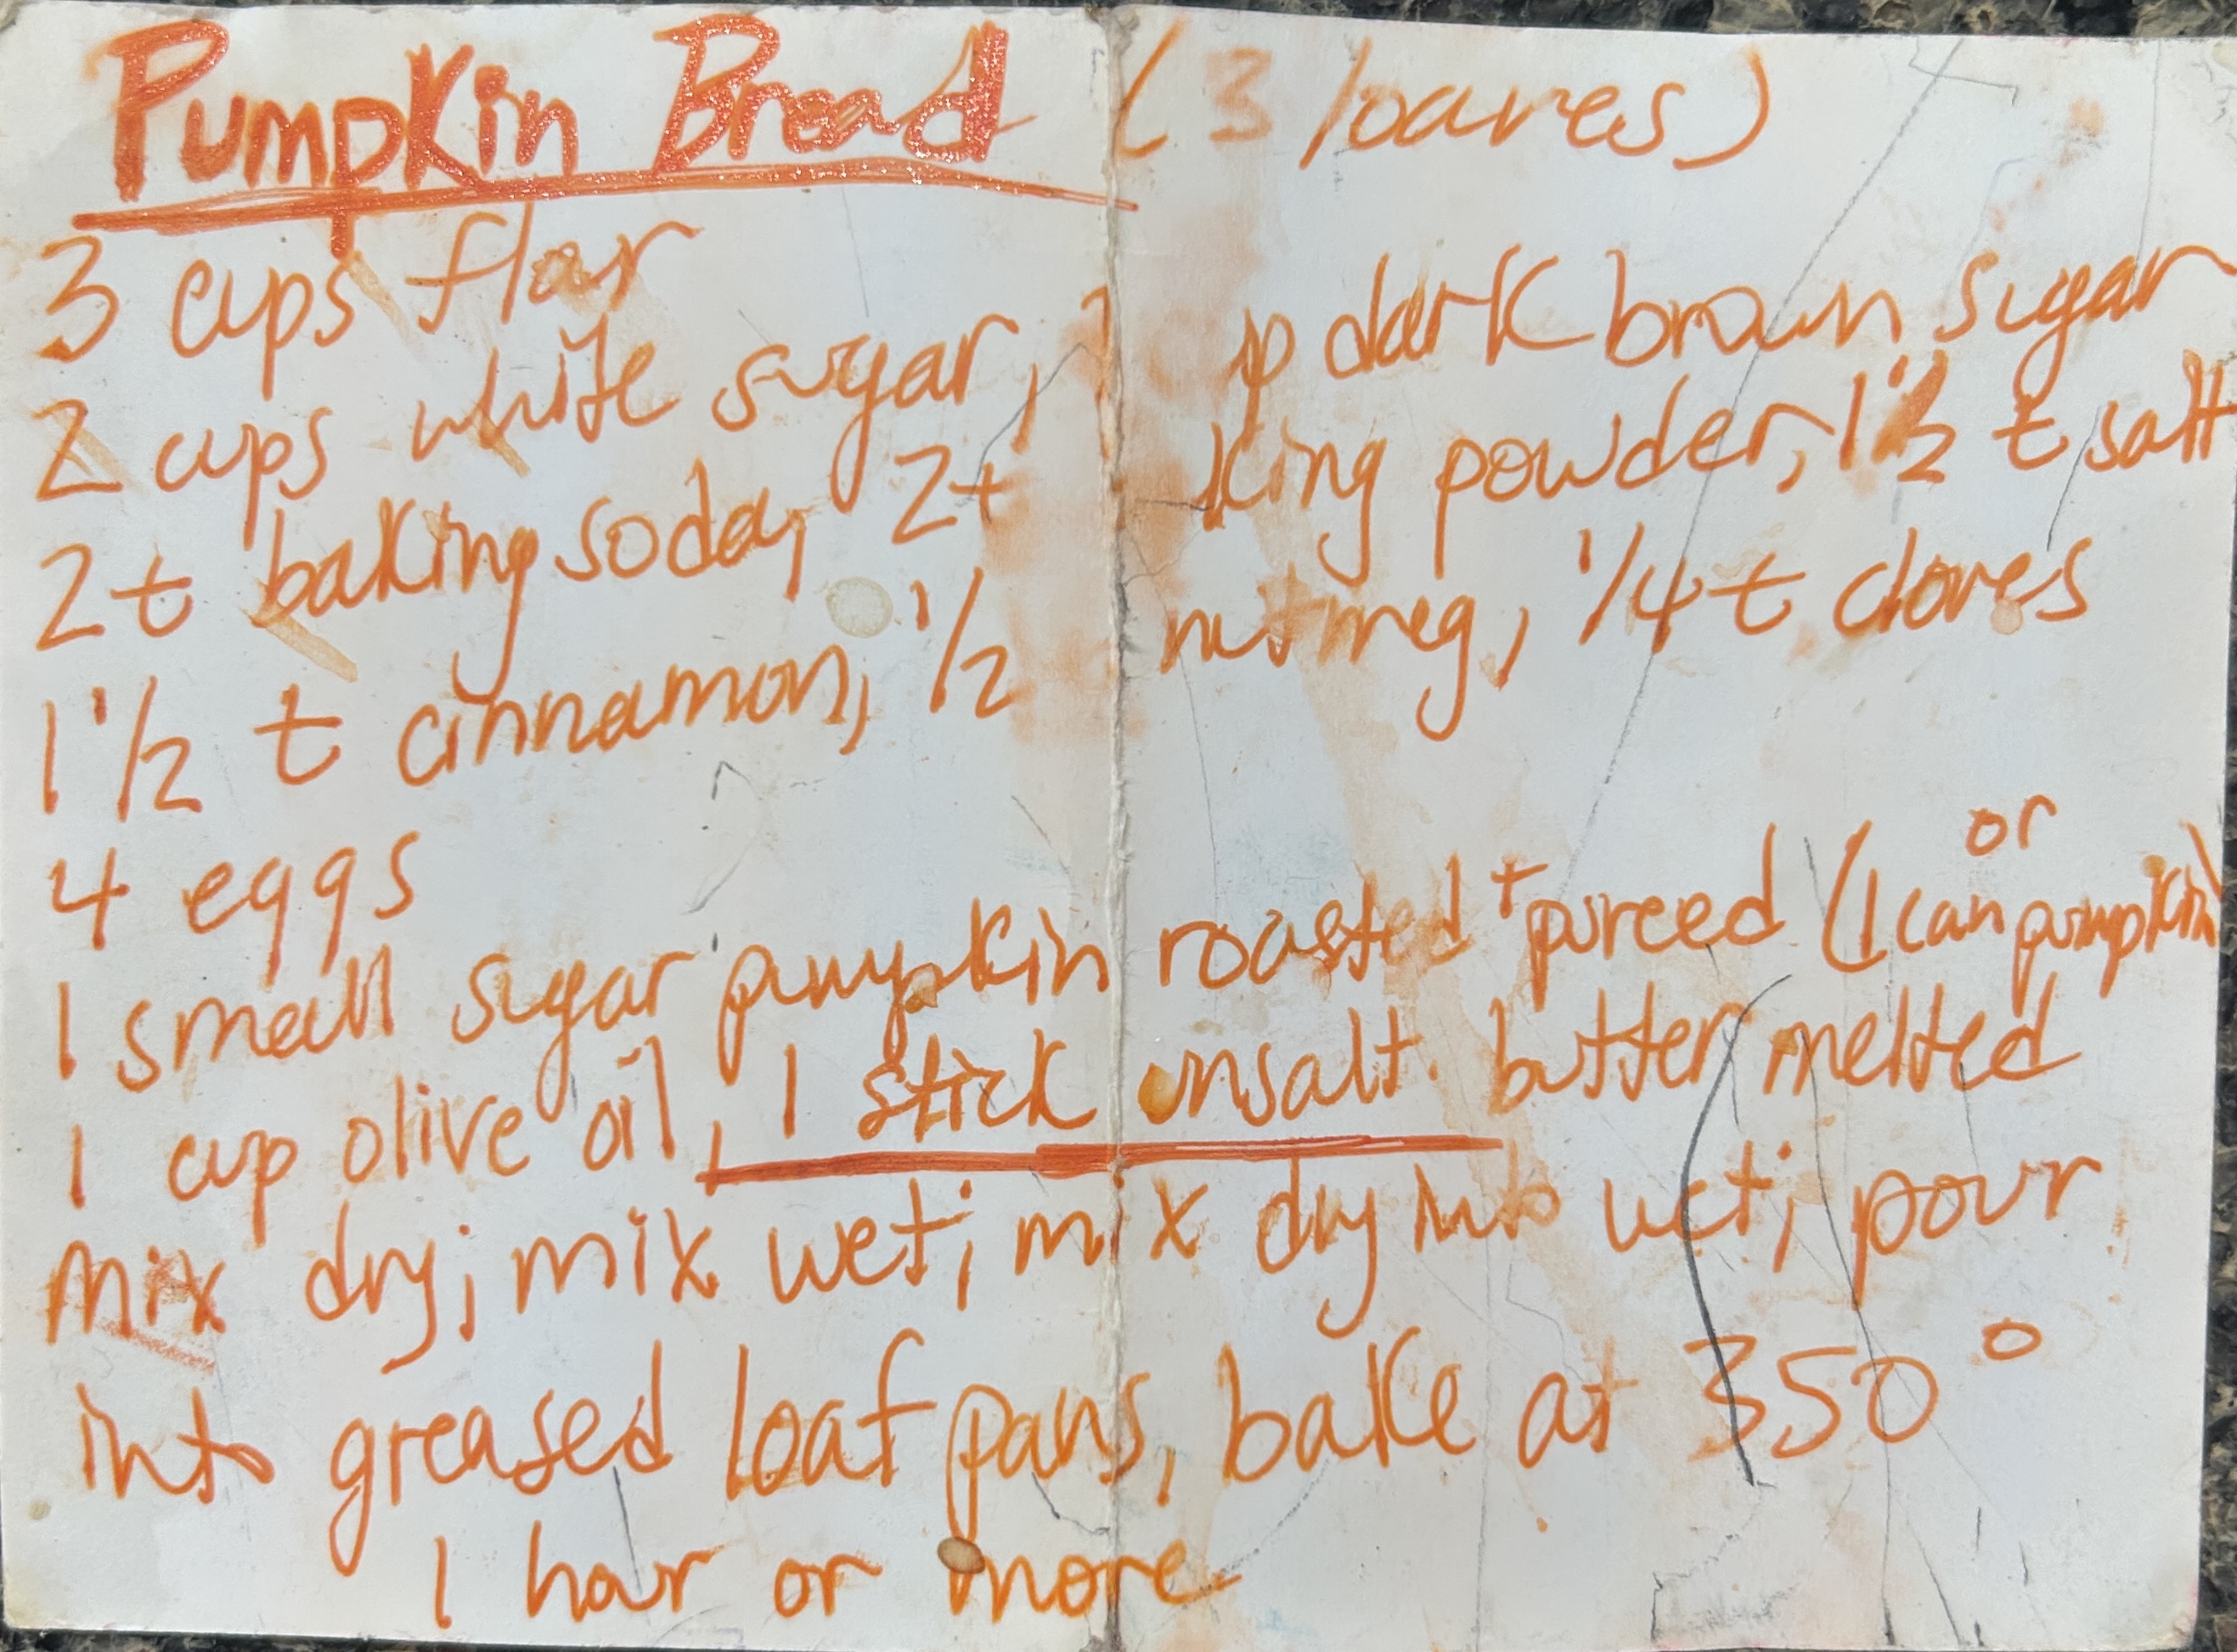 Pumpkin Bread (3 loaves)
3 cups flour
2 cups white sugar, 1 dark brown sugar
2 t baking soda, 2 t powder, 1 1/2 t salt
1 1/2 t cinnamon, 1/2 nutmeg, 1/4 t cloves
4 eggs
1 small sugar pumpkin roasted + pureed (or 1 can pumpkin)
1 cup olive oil, 1 stick unsalt. butter melted
mix dry; mix wet; mix dry into wet; pour
into greased loaf pans, bake at 350°
1 hour or more